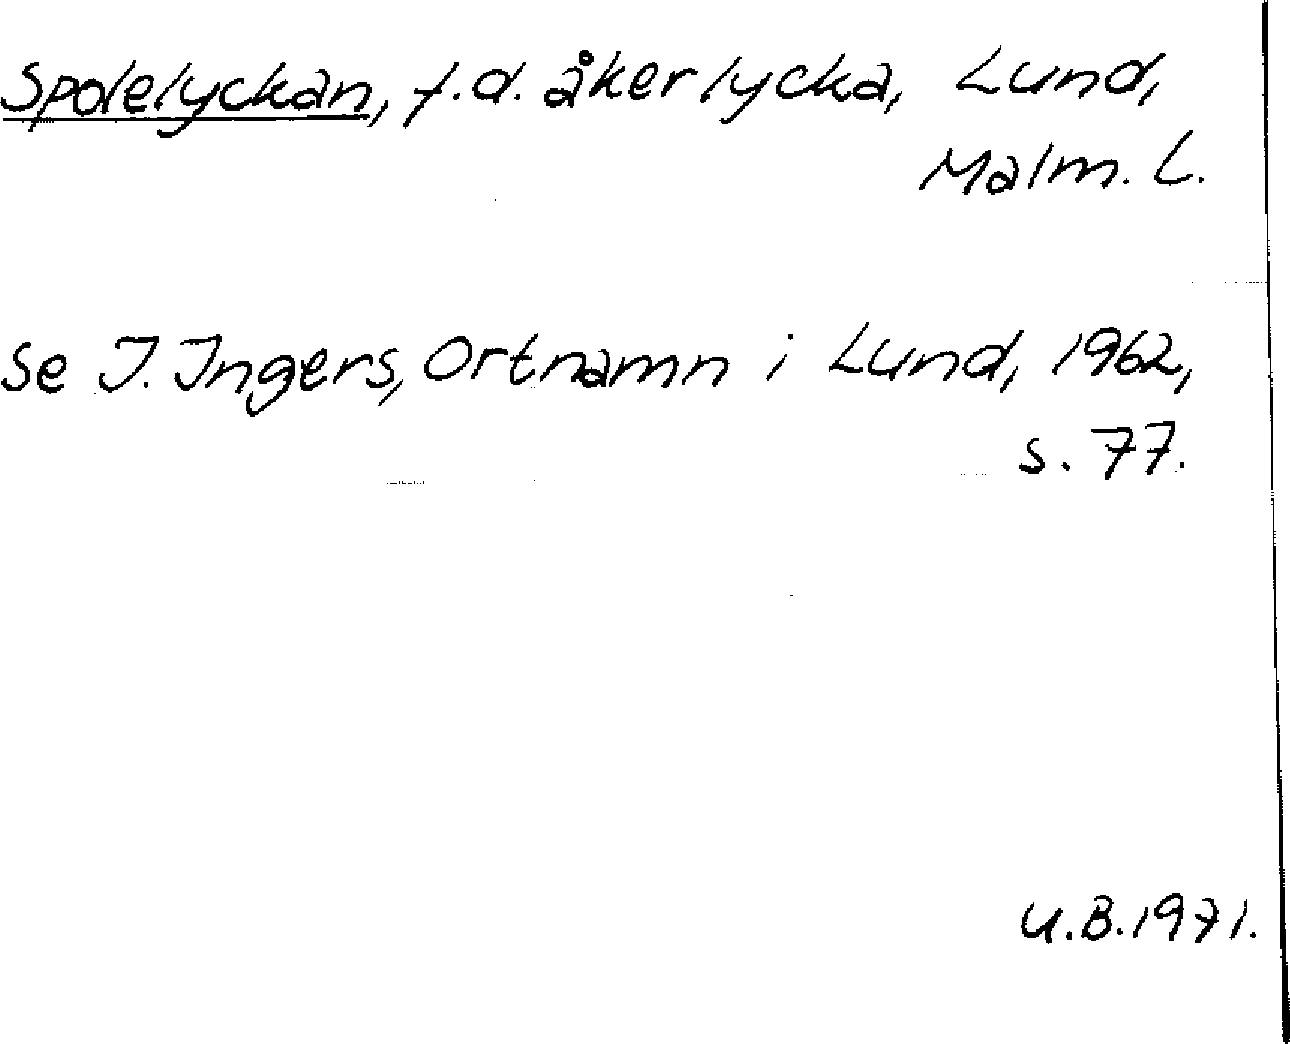 Spolelyckan, f.d. åkerlycka, Lund,
Malm. L.
Se I. Ingers, Ortnamn i Lund, 1962,
s. 77.
U.B.1971.